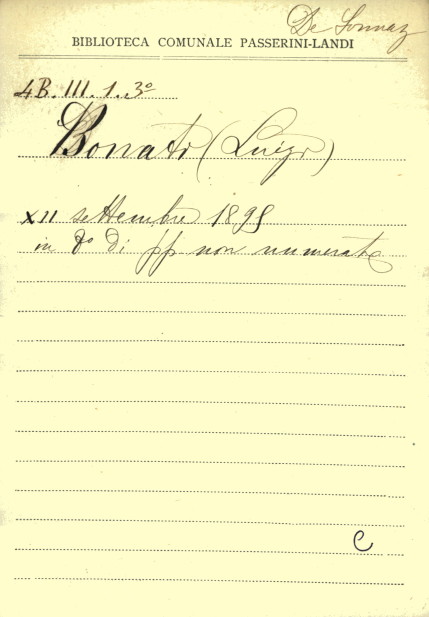 De Sonnaz
BIBLIOTECA COMUNALE PASSERINI-LANDI
4B. III. 1. 3º
Bonato (Luigi)
XII settembre 1895
in 8º di pp non numerate
C